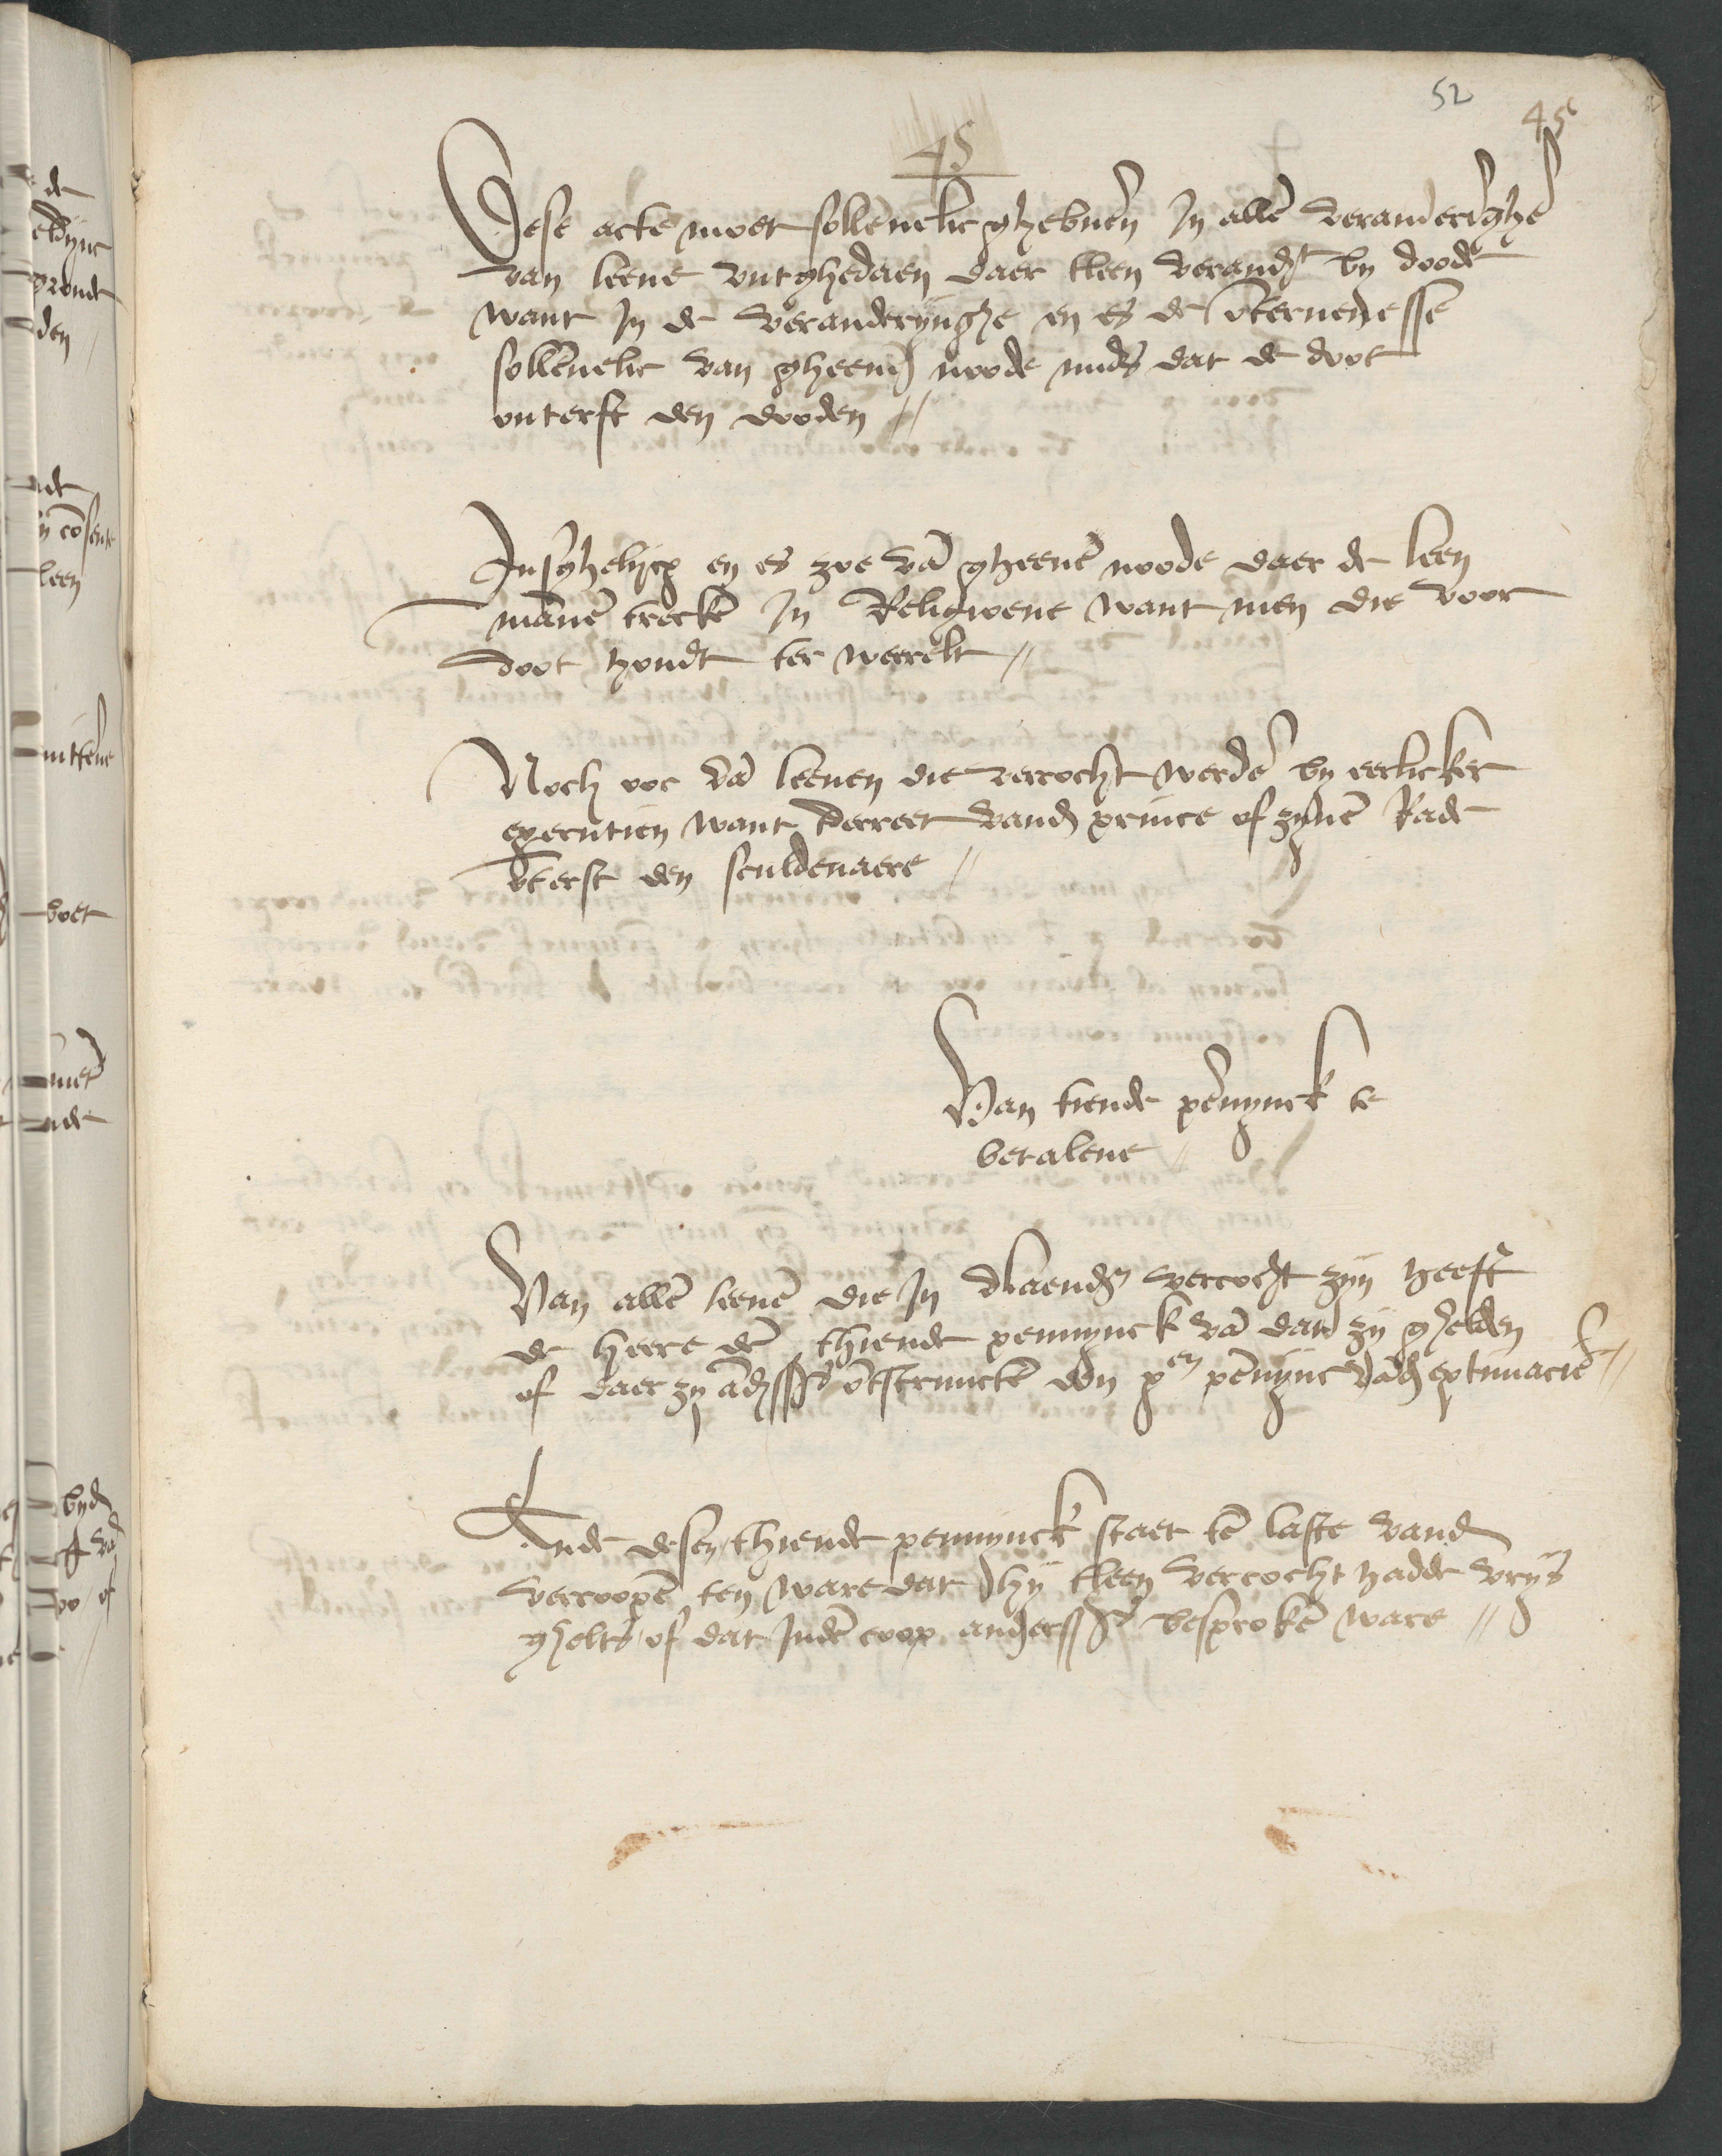 52
45
45
Dese acte moet sollenelic ghebuerē In allē veranderīghē
van leene vutghedaen daer tleen verandt by doode
want In de veranderijnghe en es de ōteruenesse
sollēnelic van gheend noode mids dat de doot
onterft den dooden //
Insghelijcx en es zoe vā gheenē noode daer de leen
mānē trecken In Religioene want men die voor
doot houdt ter weerelt //
Noch ooc vā leenen die vercocht werdē by eerlicker
executien want tdecreet vand prince of zijnē Rade
ōterft den sculdenaere //
Van tiende pēnynck te
betalene //
Van allē leenē die In vlaendē vercocht zijn heeft
de heere dē thiende pennynck vā dat zij ghelden
of daer zij āderssīs ōtstrunctē dōn xen pēnync vād extimacie //
Ende desen thiende pennijnck staet tē laste vand
vercoopē ten ware dat hij tleen vercocht hadde vrijs
ghelts of dat Indē coop anderssīs besprokē ware //